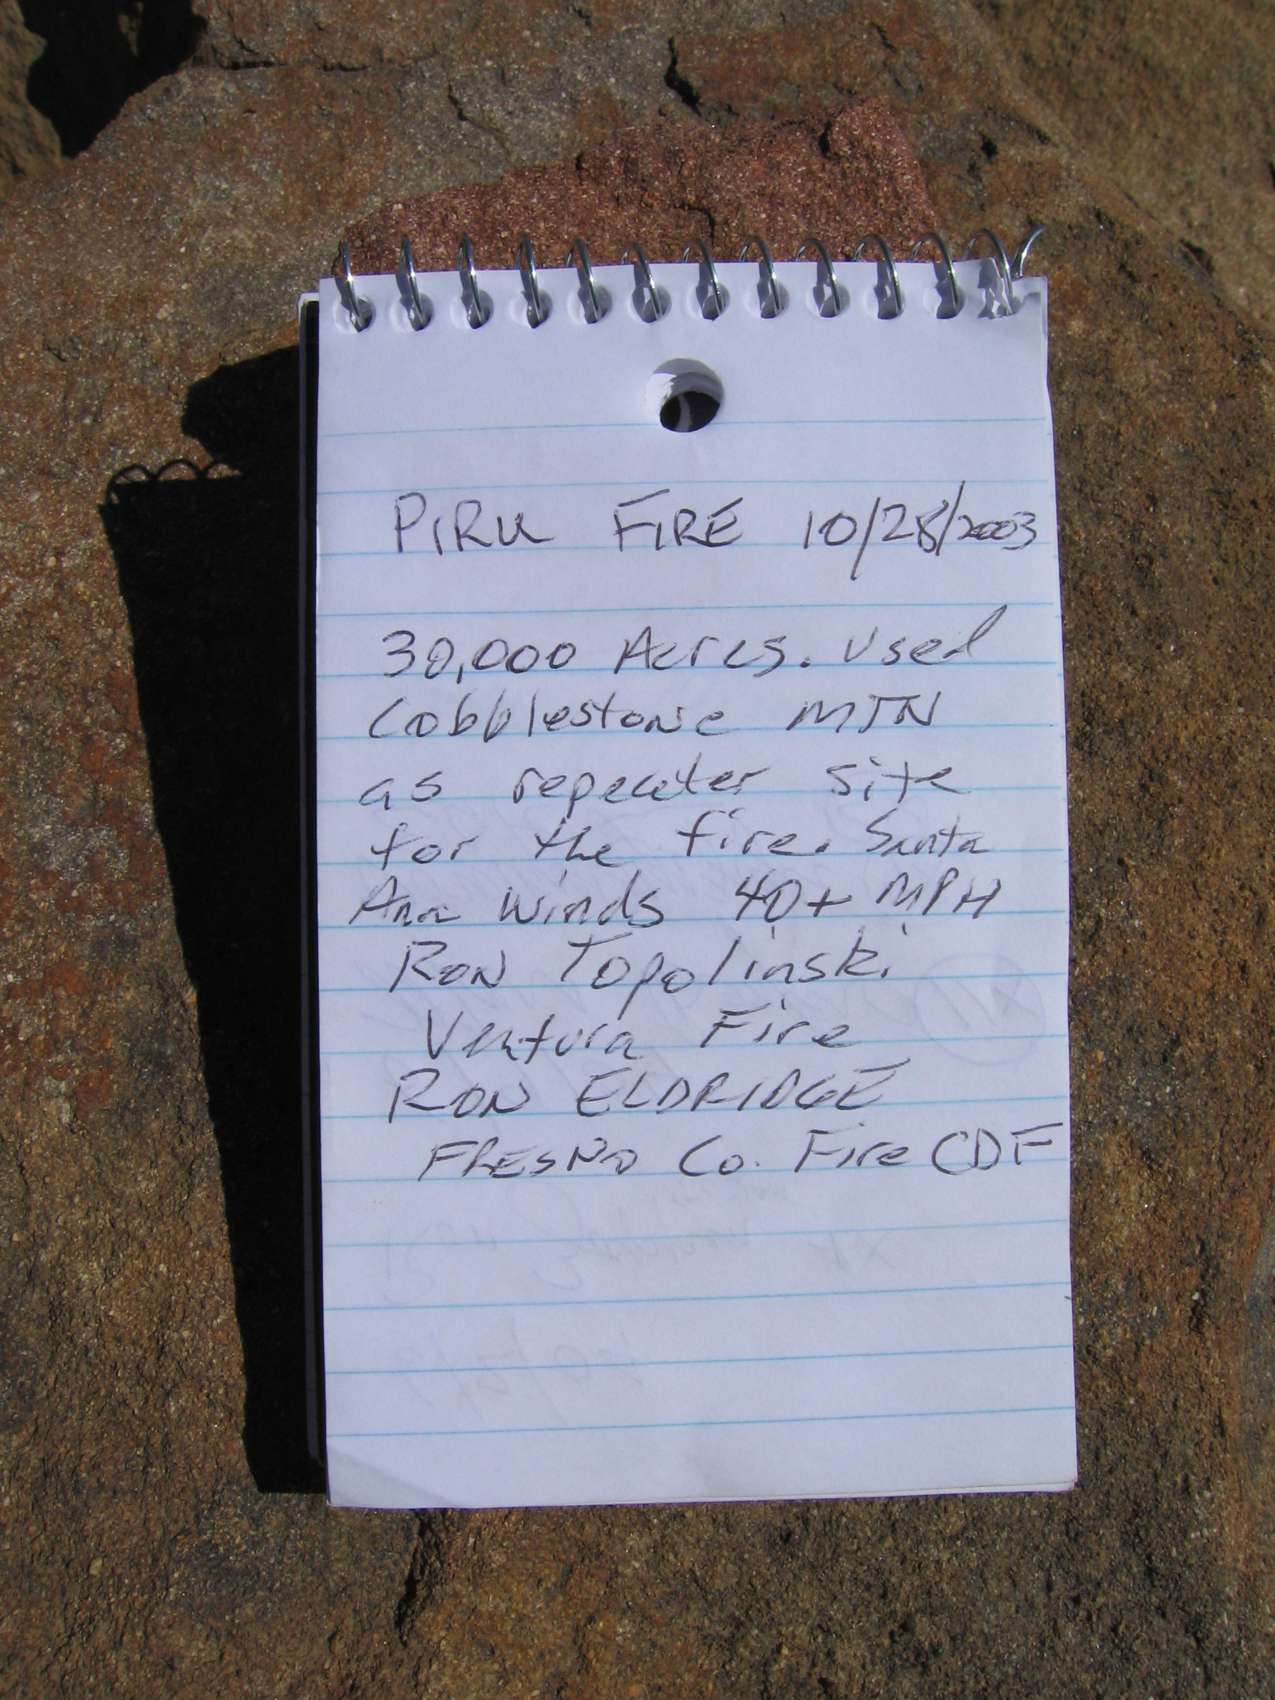 PIRU FIRE 10/28/2003
30,000 Acres. Used
Cobblestone MTN
as repeater site
for the fire. Santa
Ana Winds 40+ MPH
RON Topolinski
Ventura Fire
RON ELDRIDGE
FRESNO Co. Fire CDF